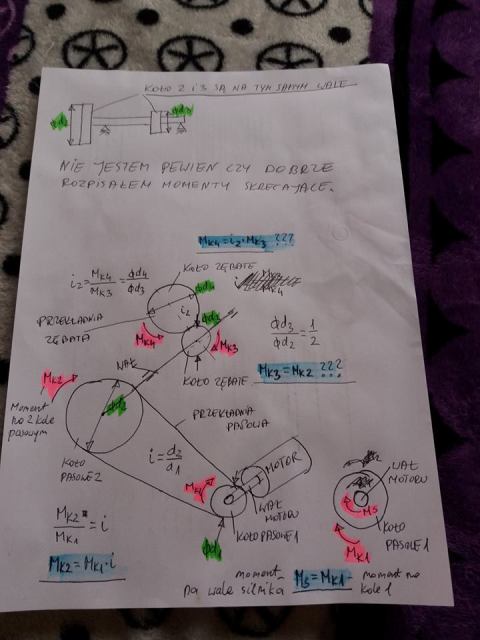 KOŁO 2 i 3 SĄ NA TYM SAMYM WALE
ϕd2
ϕd3
NIE JESTEM PEWIEN CZY DOBRZE
ROZPISAŁEM MOMENTY SKRĘCAJĄCE.
MK4 = i2·MK3 ???
i2 = MK4/MK3 = ϕd4/ϕd3
KOŁO ZĘBATE
ϕd4
i2
ϕd3
PRZEKŁADNIA
ZĘBATA
MK4
MK3
ϕd3/ϕd2 = 1/2
WAŁ
KOŁO ZĘBATE
MK3 = MK2 ???
MK2
Moment
na 2 kole
pasowym
ϕd2
PRZEKŁADNIA
PASOWA
KOŁO
PASOWE 2
i = d2/d1
MOTOR
WAŁ
MOTORU
MK1
WAŁ
MOTORU
MS
KOŁO
PASOWE 1
MK1
KOŁO PASOWE 1
ϕd1
MK2/MK1 = i
MK2 = MK1·i
moment
na wale silnika
MS = MK1
moment na
kole 1